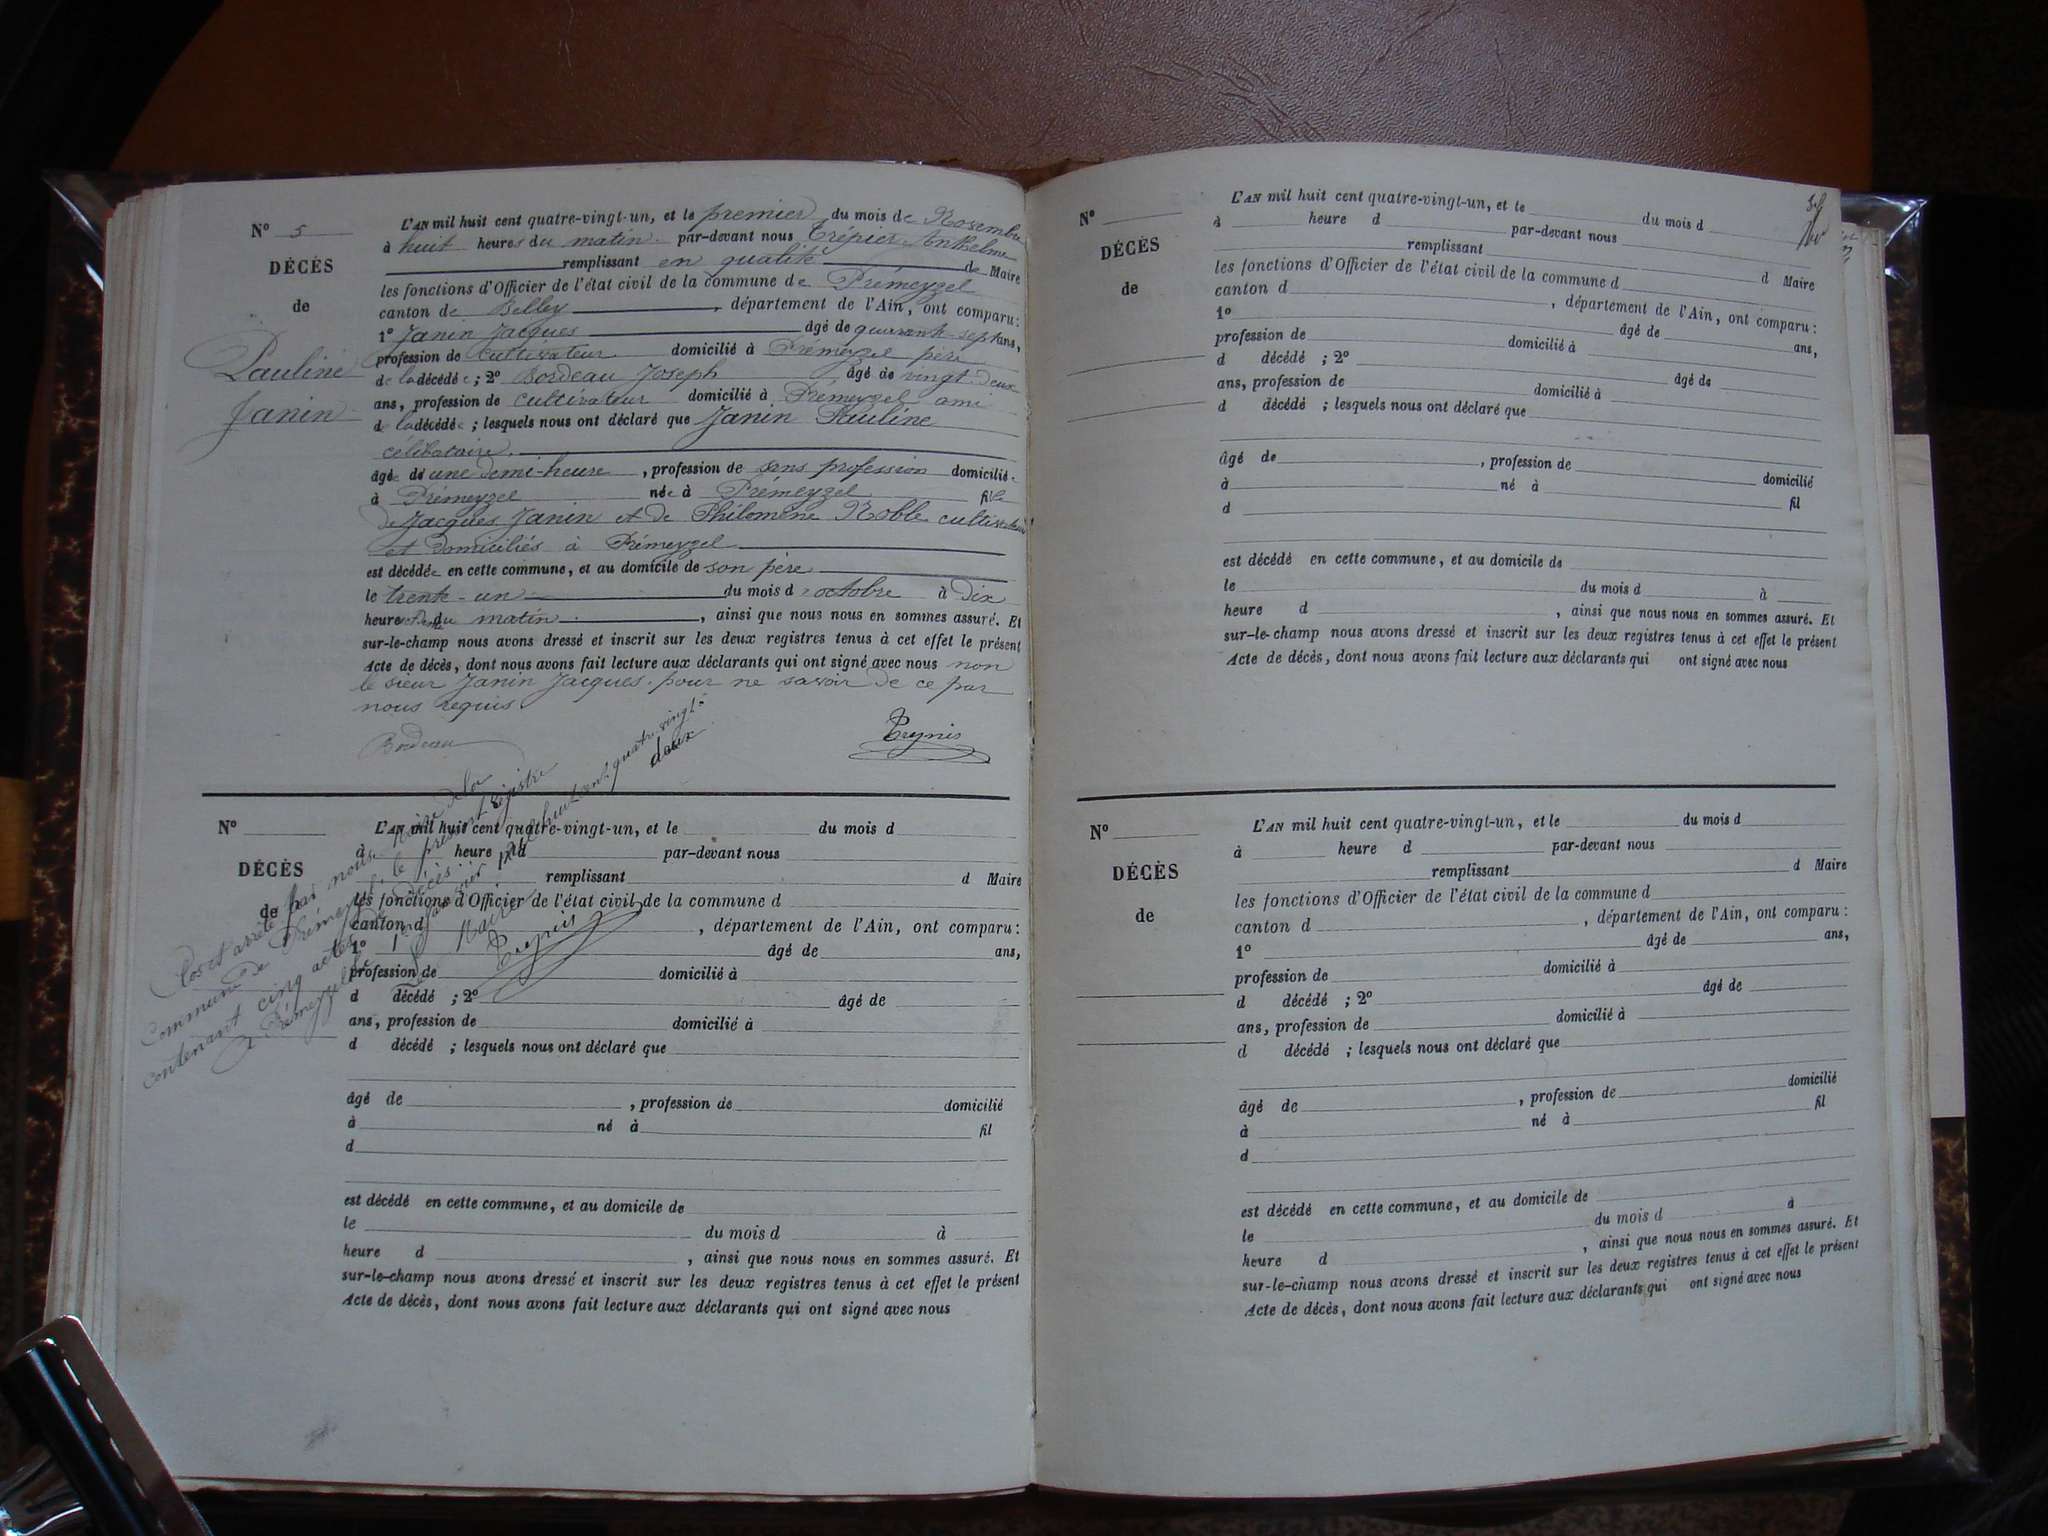 N° 5
DÉCÈS
de
Pauline
Janin
L'AN mil huit cent quatre-vingt-un, et le premier du mois de Novembre
à huit heures du matin par-devant nous Trépier Anthelme
remplissant en qualité de Maire
les fonctions d'Officier de l'état civil de la commune de Prémeyzel
canton de Belley, département de l'Ain, ont comparu:
1° Janin Jacques âgé de quarante-sept ans,
profession de cultivateur domicilié à Prémeyzel père
de la décédée; 2° Bordeau Joseph âgé de vingt-deux
ans, profession de cultivateur domicilié à Prémeyzel ami
de la décédée; lesquels nous ont déclaré que Janin Pauline
célibataire
âgée de une demi-heure, profession de sans profession domiciliée
à Prémeyzel née à Prémeyzel fille
de Jacques Janin et de Philomène Noble cultivateurs
et domiciliés à Prémeyzel
est décédée en cette commune, et au domicile de son père
le trente-un du mois d'octobre à dix
heures du matin, ainsi que nous nous en sommes assuré. Et
sur-le-champ nous avons dressé et inscrit sur les deux registres tenus à cet effet le présent
Acte de décès, dont nous avons fait lecture aux déclarants qui ont signé avec nous non
le sieur Janin Jacques pour ne savoir de ce par
nous requis
Bordeau
Clos et arrêté par nous Maire de la
commune de Prémeyzel, le présent registre
contenant cinq actes de décès
à Prémeyzel le janvier mil huit cent quatre-vingt-
deux
Le Maire
N°
DÉCÈS
de
L'AN mil huit cent quatre-vingt-un, et le du mois d
à heure d par-devant nous
remplissant d Maire
les fonctions d'Officier de l'état civil de la commune d
canton d , département de l'Ain, ont comparu:
1° âgé de ans,
profession de domicilié à
d décédé ; 2° âgé de
ans, profession de domicilié à
d décédé ; lesquels nous ont déclaré que
âgé de , profession de domicilié
à né à fil
d
est décédé en cette commune, et au domicile de
le du mois d à
heure d , ainsi que nous nous en sommes assuré. Et
sur-le-champ nous avons dressé et inscrit sur les deux registres tenus à cet effet le présent
Acte de décès, dont nous avons fait lecture aux déclarants qui ont signé avec nous
N°
DÉCÈS
de
L'AN mil huit cent quatre-vingt-un, et le du mois d
à heure d par-devant nous
remplissant
les fonctions d'Officier de l'état civil de la commune d d Maire
canton d , département de l'Ain, ont comparu:
1° âgé de ans,
profession de domicilié à
d décédé ; 2° âgé de
ans, profession de domicilié à
d décédé ; lesquels nous ont déclaré que
âgé de , profession de domicilié
à né à
d fil
est décédé en cette commune, et au domicile de
le du mois d à
heure d , ainsi que nous nous en sommes assuré. Et
sur-le-champ nous avons dressé et inscrit sur les deux registres tenus à cet effet le présent
Acte de décès, dont nous avons fait lecture aux déclarants qui ont signé avec nous
N°
DÉCÈS
de
L'AN mil huit cent quatre-vingt-un, et le du mois d
à heure d par-devant nous
remplissant d Maire
les fonctions d'Officier de l'état civil de la commune d
canton d , département de l'Ain, ont comparu:
1° âgé de ans,
profession de domicilié à
d décédé ; 2° âgé de
ans, profession de domicilié à
d décédé ; lesquels nous ont déclaré que
âgé de , profession de domicilié
à né à fil
d
est décédé en cette commune, et au domicile de
le du mois d à
heure d , ainsi que nous nous en sommes assuré. Et
sur-le-champ nous avons dressé et inscrit sur les deux registres tenus à cet effet le présent
Acte de décès, dont nous avons fait lecture aux déclarants qui ont signé avec nous